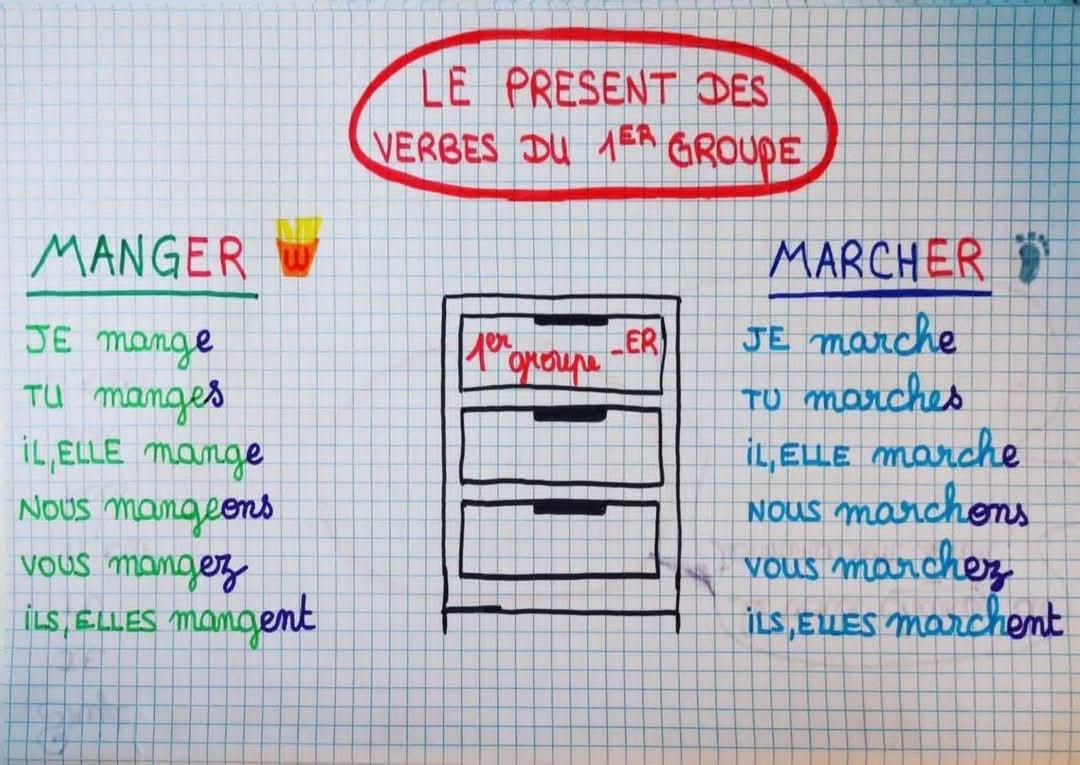 LE PRESENT DES
VERBES DU 1ER GROUPE
MANGER
JE mange
TU manges
iL, ELLE mange
NOUS mangeons
VOUS mangez
iLS, ELLES mangent
1er groupe -ER
MARCHER
JE marche
TU marches
iL, ELLE marche
NOUS marchons
VOUS marchez
iLS, ELLES marchent